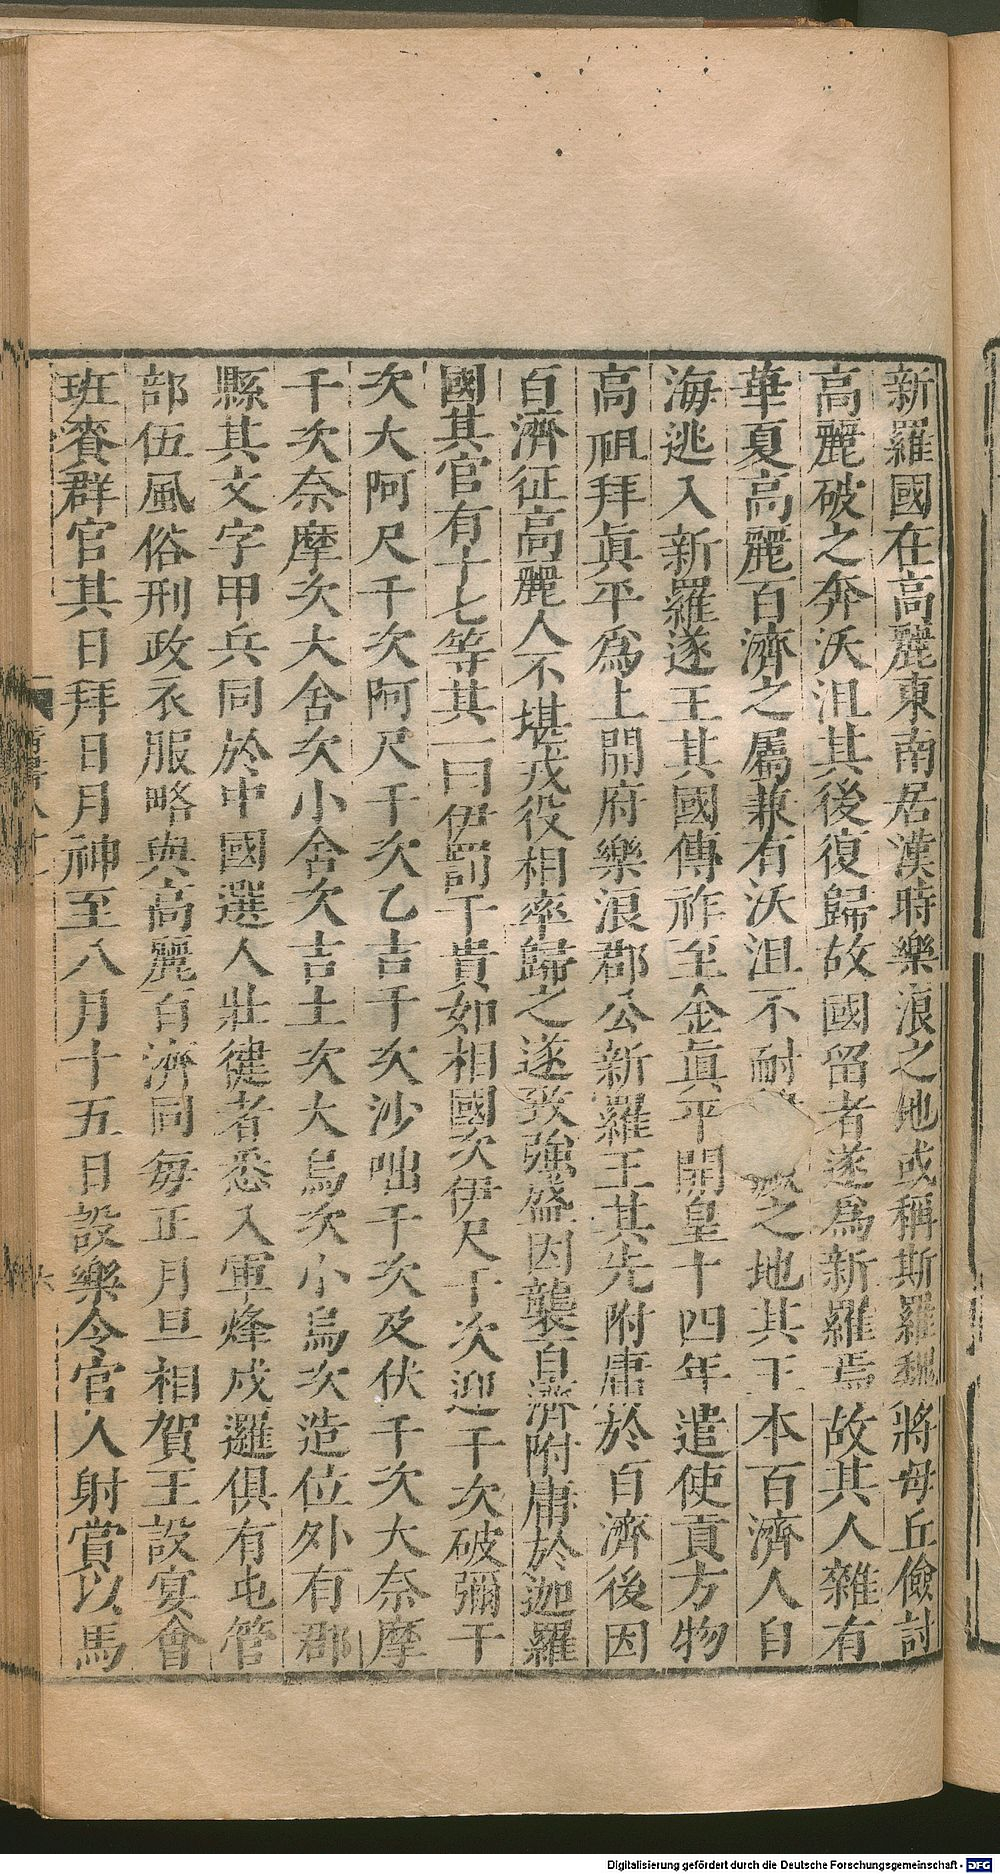 新羅國在高麗東南居漢時樂浪之地或稱斯羅魏將毋丘儉討
高麗破之奔沃沮其後復歸故國留者遂爲新羅焉故其人雜有
華夏高麗百濟之屬兼有沃沮不耐之地其王本百濟人自
海逃入新羅遂王其國傳祚至金眞平開皇十四年遣使貢方物
高祖拜眞平爲上開府樂浪郡公新羅王其先附庸於百濟後因
百濟征高麗人不堪戎役相率歸之遂致強盛因襲百濟附庸於迦羅
國其官有十七等其一曰伊罰干貴如相國次伊尺干次迎干次破彌干
次大阿尺干次阿尺干次乙吉干次沙咄干次及伏干次大奈摩
干次奈摩次大舍次小舍次吉土次大烏次小烏次造位外有郡
縣其文字甲兵同於中國選人壯健者悉入軍烽戍邏俱有屯管
部伍風俗刑政衣服略與高麗百濟同每正月旦相賀王設宴會
班賚群官其日拜日月神至八月十五日設樂令官人射賞以馬
Digitalisierung gefördert durch die Deutsche Forschungsgemeinschaft - DFG